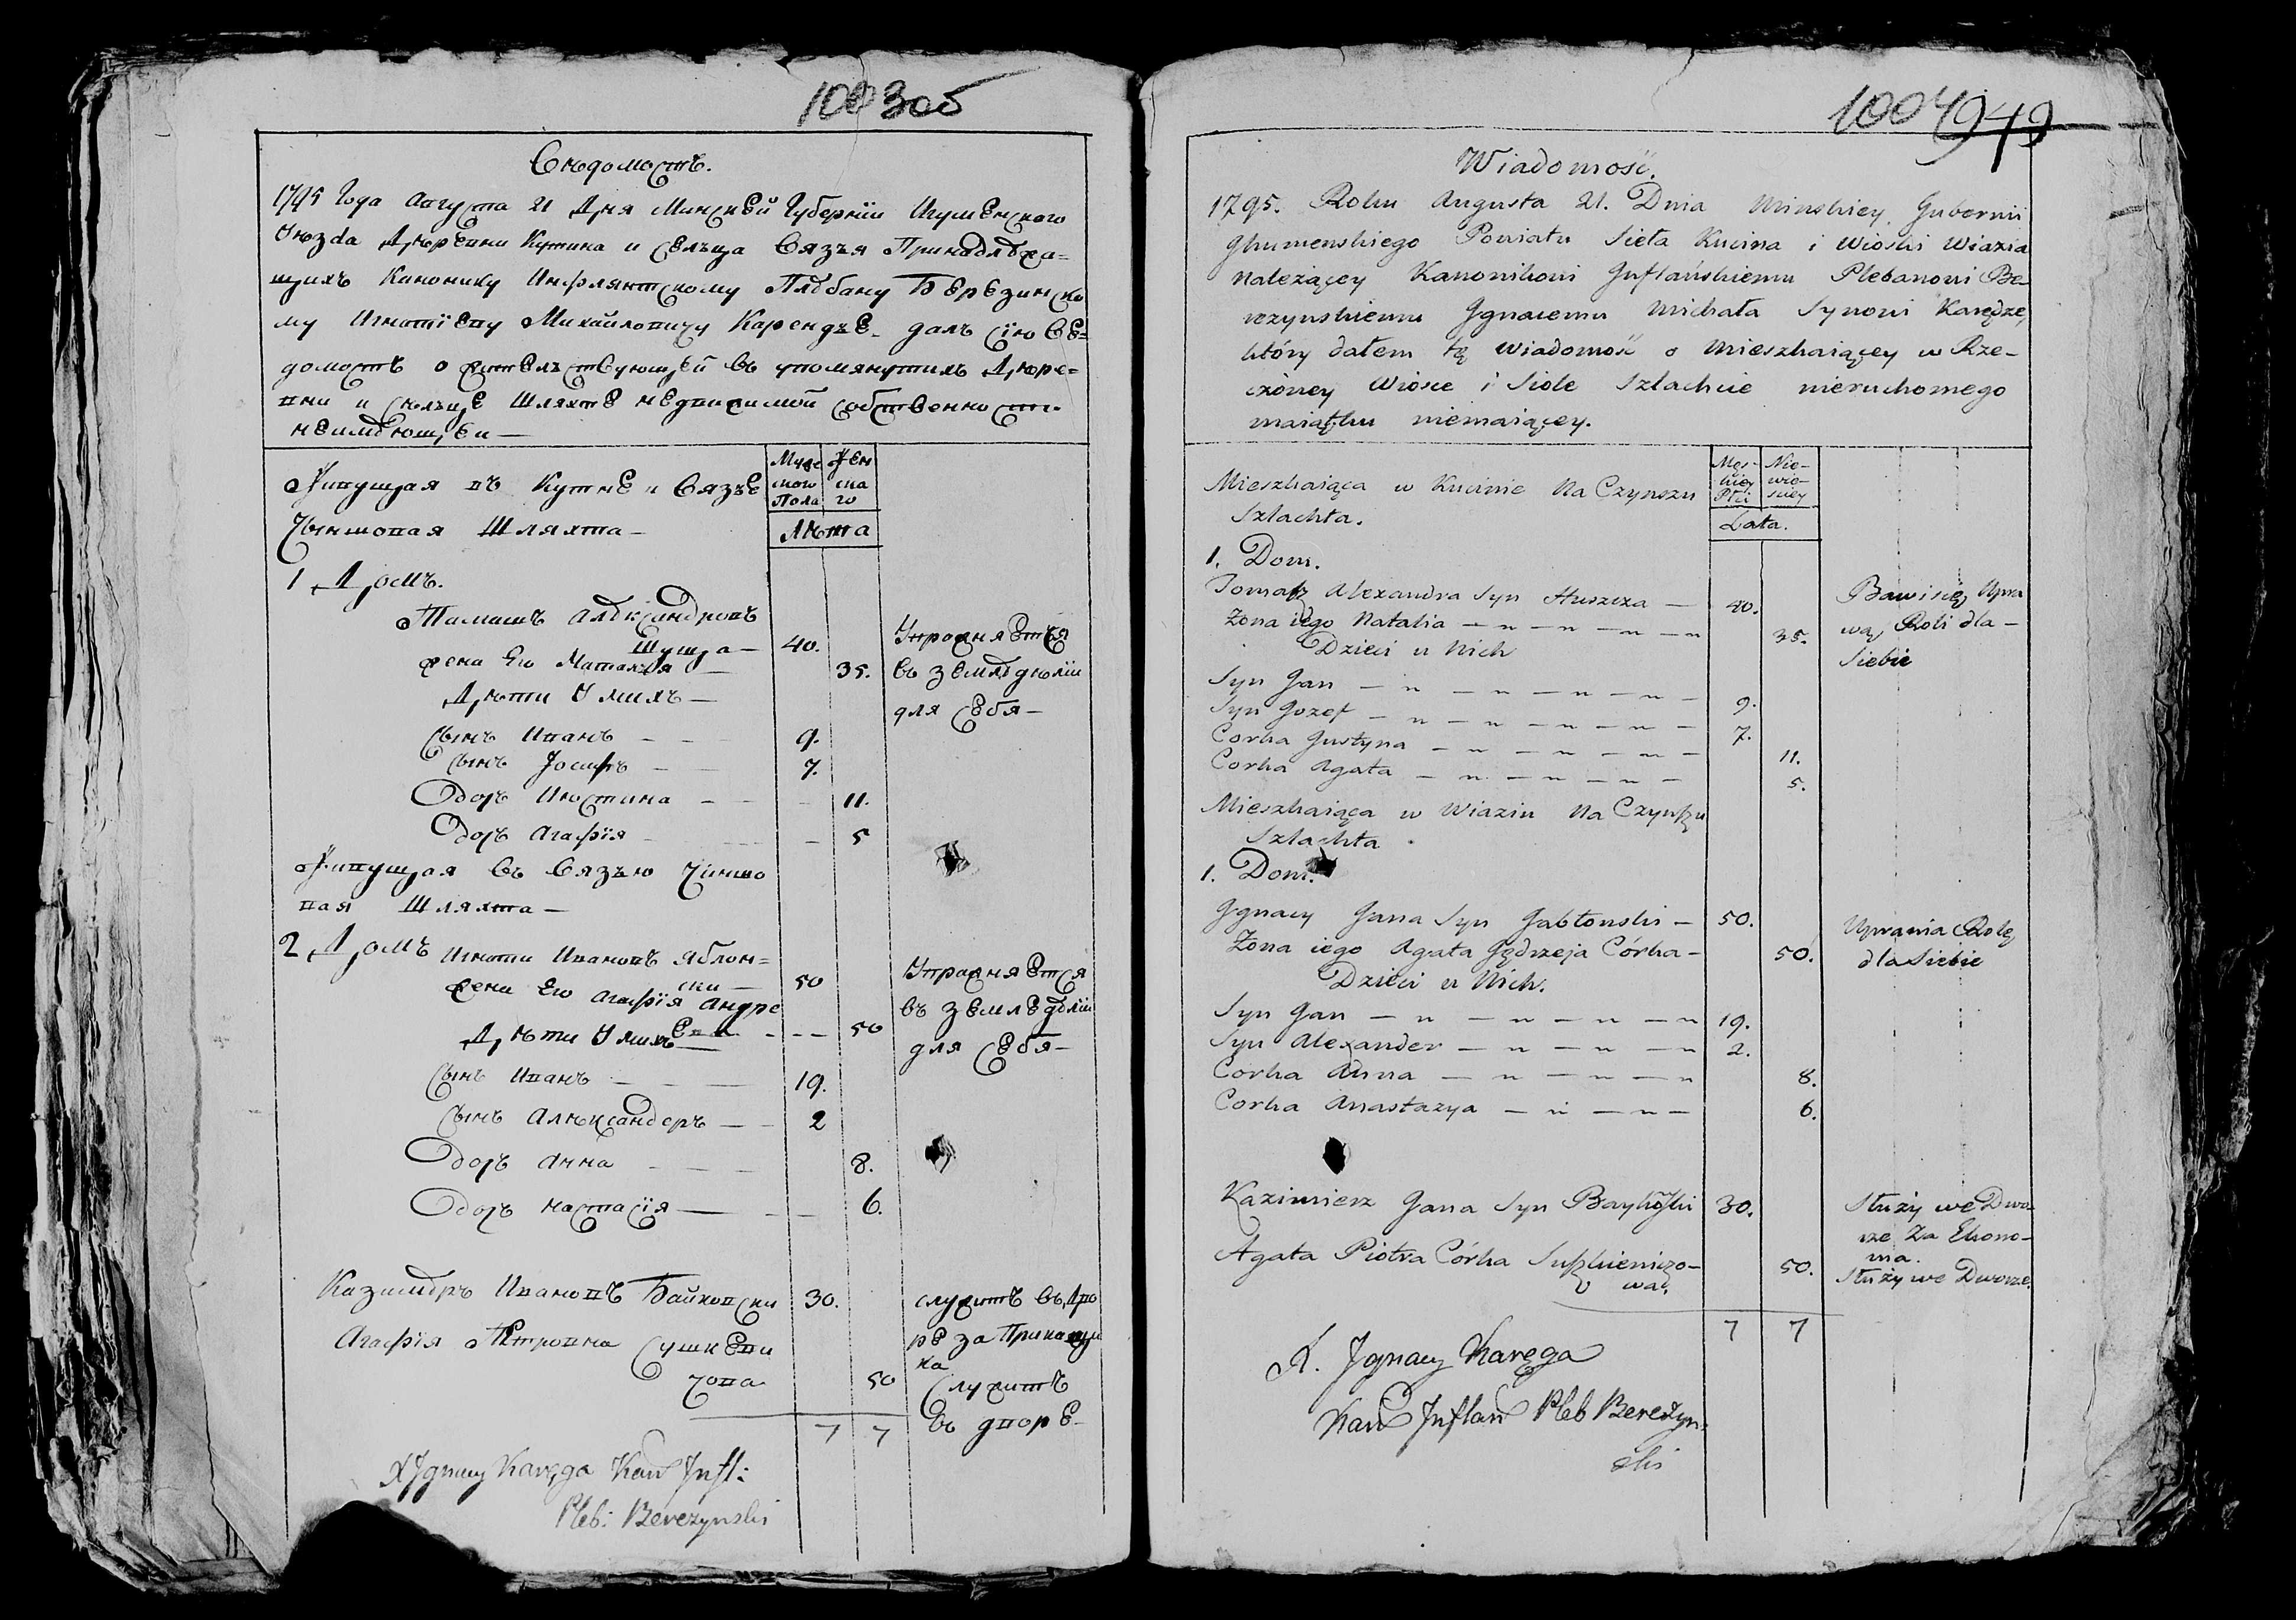 Вѣдомость.
1795 Года Августа 21 Дня Минской Губернїи Игуменского
Уѣзда Дѣревни Кутина и Сельца Вязья Принадлежа=
щихъ Канонику Инфлянтскому Плебану Березинско
му Игнатїеву Михайловичу Карендзе- далъ сїю Ве=
домость о жительствующей въ упомянутихъ Дѣре=
вни и сельце Шляхте недвижимой собственности
неимеющей —
Живущая въ Кутне и Вязье
Чыншовая Шляхта —
Муже
ског
Пола
Жен
ска
го
Лѣта
1 Домъ.
Тамашъ Александровъ
Шуща — 40.
жена Его Наталья — 35.
Дѣти У нихъ —
Упражняется
въ земледѣлїи
для себя —
Сынъ Иванъ — 9.
Сынъ Іосифъ — 7.
Дочь Июстина — 11.
Дочь Агафїя — 5
Живущая въ Вязью Чиншо
вая Шляхта —
2 Домъ Игнати Ивановъ Яблон=
ски — 50
жена Его Агафїя Андре
ева — 50
Дѣти У нихъ —
Упражняется
въ земледелїи
для себя —
Сынъ Иванъ — 19.
Сынъ Алѣксандеръ — 2
Дочь Анна — 8.
Дочь Настасїя — 6.
Казимеръ Ивановъ Байковски 30.
служитъ въ Дво
ре за Прикащи
ка
Агафїя Петровна Сушкеви
чова 50
Служитъ
въ дворе-
7 7
X Jgnacy Karęga Kan Jnfl:
Pleb: Berezynski
1004 949
Wiadomość.
1795. Roku Augusta 21. Dnia Minskiey Gubernii
Jhumenskiego Powiatu Sieła Kucina i Wioski Wiazia
należącey Kanonikowi Jnflańskiemu Plebanowi Be-
rezynskiemu Jgnacemu Michała Synowi Karędze,
który dałem tę Wiadomość o Mieszkaiącey w Rze-
czóney Wiosce i Siole Szlachcie nieruchomego
maiątku niemaiącey.
Mieszkaiąca w Kucinie Na Czynszu
Szlachta.
Męs-
kiey
Płci
Nie-
wie-
sciey
Lata.
1. Dom.
Tomasz Alexandra Syn Huszcza — 40.
Zona iego Natalia — 35.
Dzieci u Nich
Bawi się Upra
wą Roli dla —
Siebie
Syn Jan — 9.
Syn Jozef — 7.
Corka Justyna — 11.
Corka Agata — 5.
Mieszkaiąca w Wiaziu Na Czynszu
Szlachta.
1. Dom.
Jgnacy Jana Syn Jabłonski — 50.
Żona iego Agata Jędrzeja Córka — 50.
Dzieci u Nich.
Uprawia Rolę
dla Siebie
Syn Jan — 19.
Syn Alexander — 2.
Corka Anna — 8.
Corka Anastazya — 6.
Kazimierz Jana Syn Baykoski 30.
Służy we Dwo-
rze Za Ekono-
ma.
Agata Piotra Córka Suszkiewiczo-
wa. 50.
Służy we Dworze.
7 7
X. Jgnacy Karęga
Kan Jnflan Pleb Berezyn-
ski